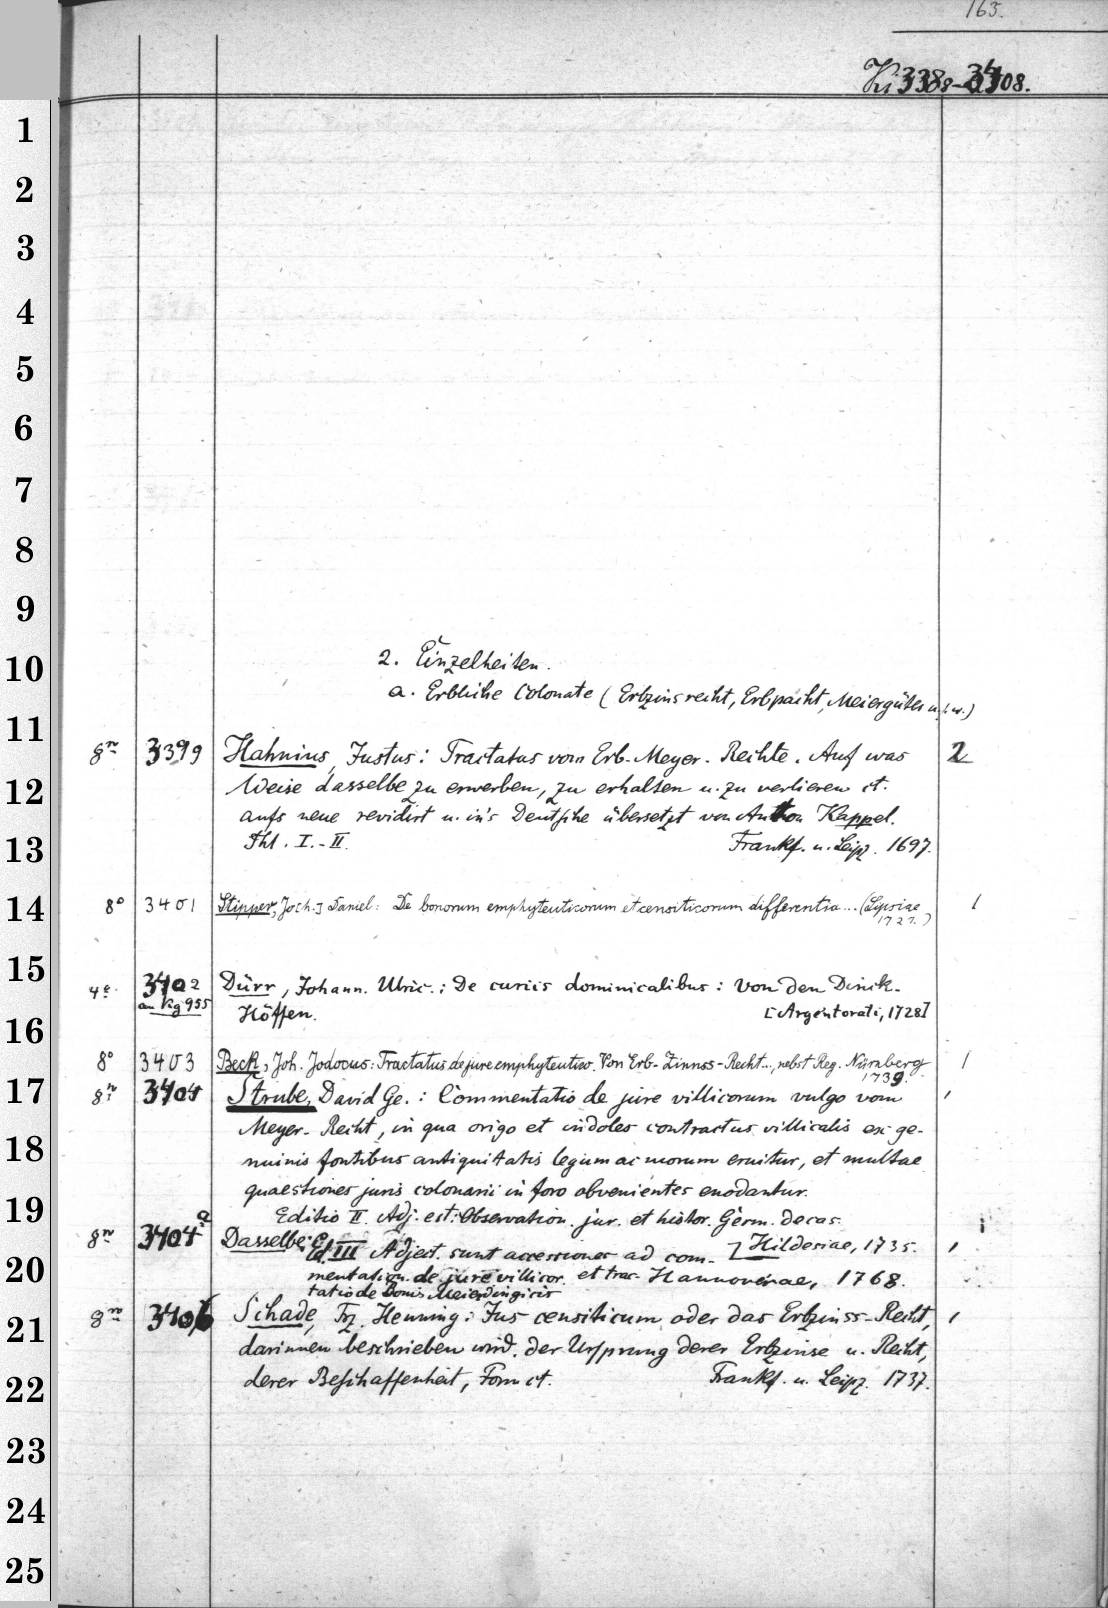 163.
Ki 3388-3408.
1
2
3
4
5
6
7
8
9
10
11
12
13
14
15
16
17
18
19
20
21
22
23
24
25
2. Einzelheiten.
a. Erbliche Colonate (Erbzinsrecht, Erbpacht, Meiergüter u.s.w.)
8º 3399 Hahnius, Justus: Tractatus vom Erb-Meyer-Rechte. Auf was 2
Weise dasselbe zu erwerben, zu erhalten u. zu verlieren et.
aufs neue revidirt u. in's Deutsche übersetzt von Anthon Kappel.
Thl. I.-II. Frankf. u. Leipz. 1697.
8º 3401 Stipper, Joch.] Daniel: De bonorum emphyteuticorum et censiticorum differentia... (Lipsiae 1
1721.)
4º 3402 Dürr, Johann. Ulric.: De curiis dominicalibus: Von den Dinck-
an Kg 955 Höffen. [Argentorati, 1728]
8º 3403 Beck, Joh. Jodocus: Tractatus de jure emphyteutico. Von Erb-Zinnss-Recht..., nebst Reg. Nürnberg 1
1739.
8º 3404 Strube, David Ge.: Commentatio de jure villicorum vulgo vom 1
Meyer-Recht, in qua origo et indoles contractus villicalis ex ge-
nuinis fontibus antiquitatis legum ac morum eruitur, et multae
quaestiones juris colonarii in foro obvenientes enodantur.
Editio II. Adj. est: Observation. jur. et histor. Germ. decas.
Hildesiae, 1735.
8º 3404a Dasselbe. Ed. III Adject. sunt accessiones ad com- 1
mentation. de jure villicor. et trac- Hannoverae, 1768.
tatio de Bonis Meierdingicis
8º 3406 Schade, Frz. Henning: Jus censiticum oder das Erbzinss-Recht, 1
darinnen beschrieben wird. der Ursprung derer Erbzinse u. Recht,
derer Beschaffenheit, Form et. Frankf. u. Leipz. 1737.